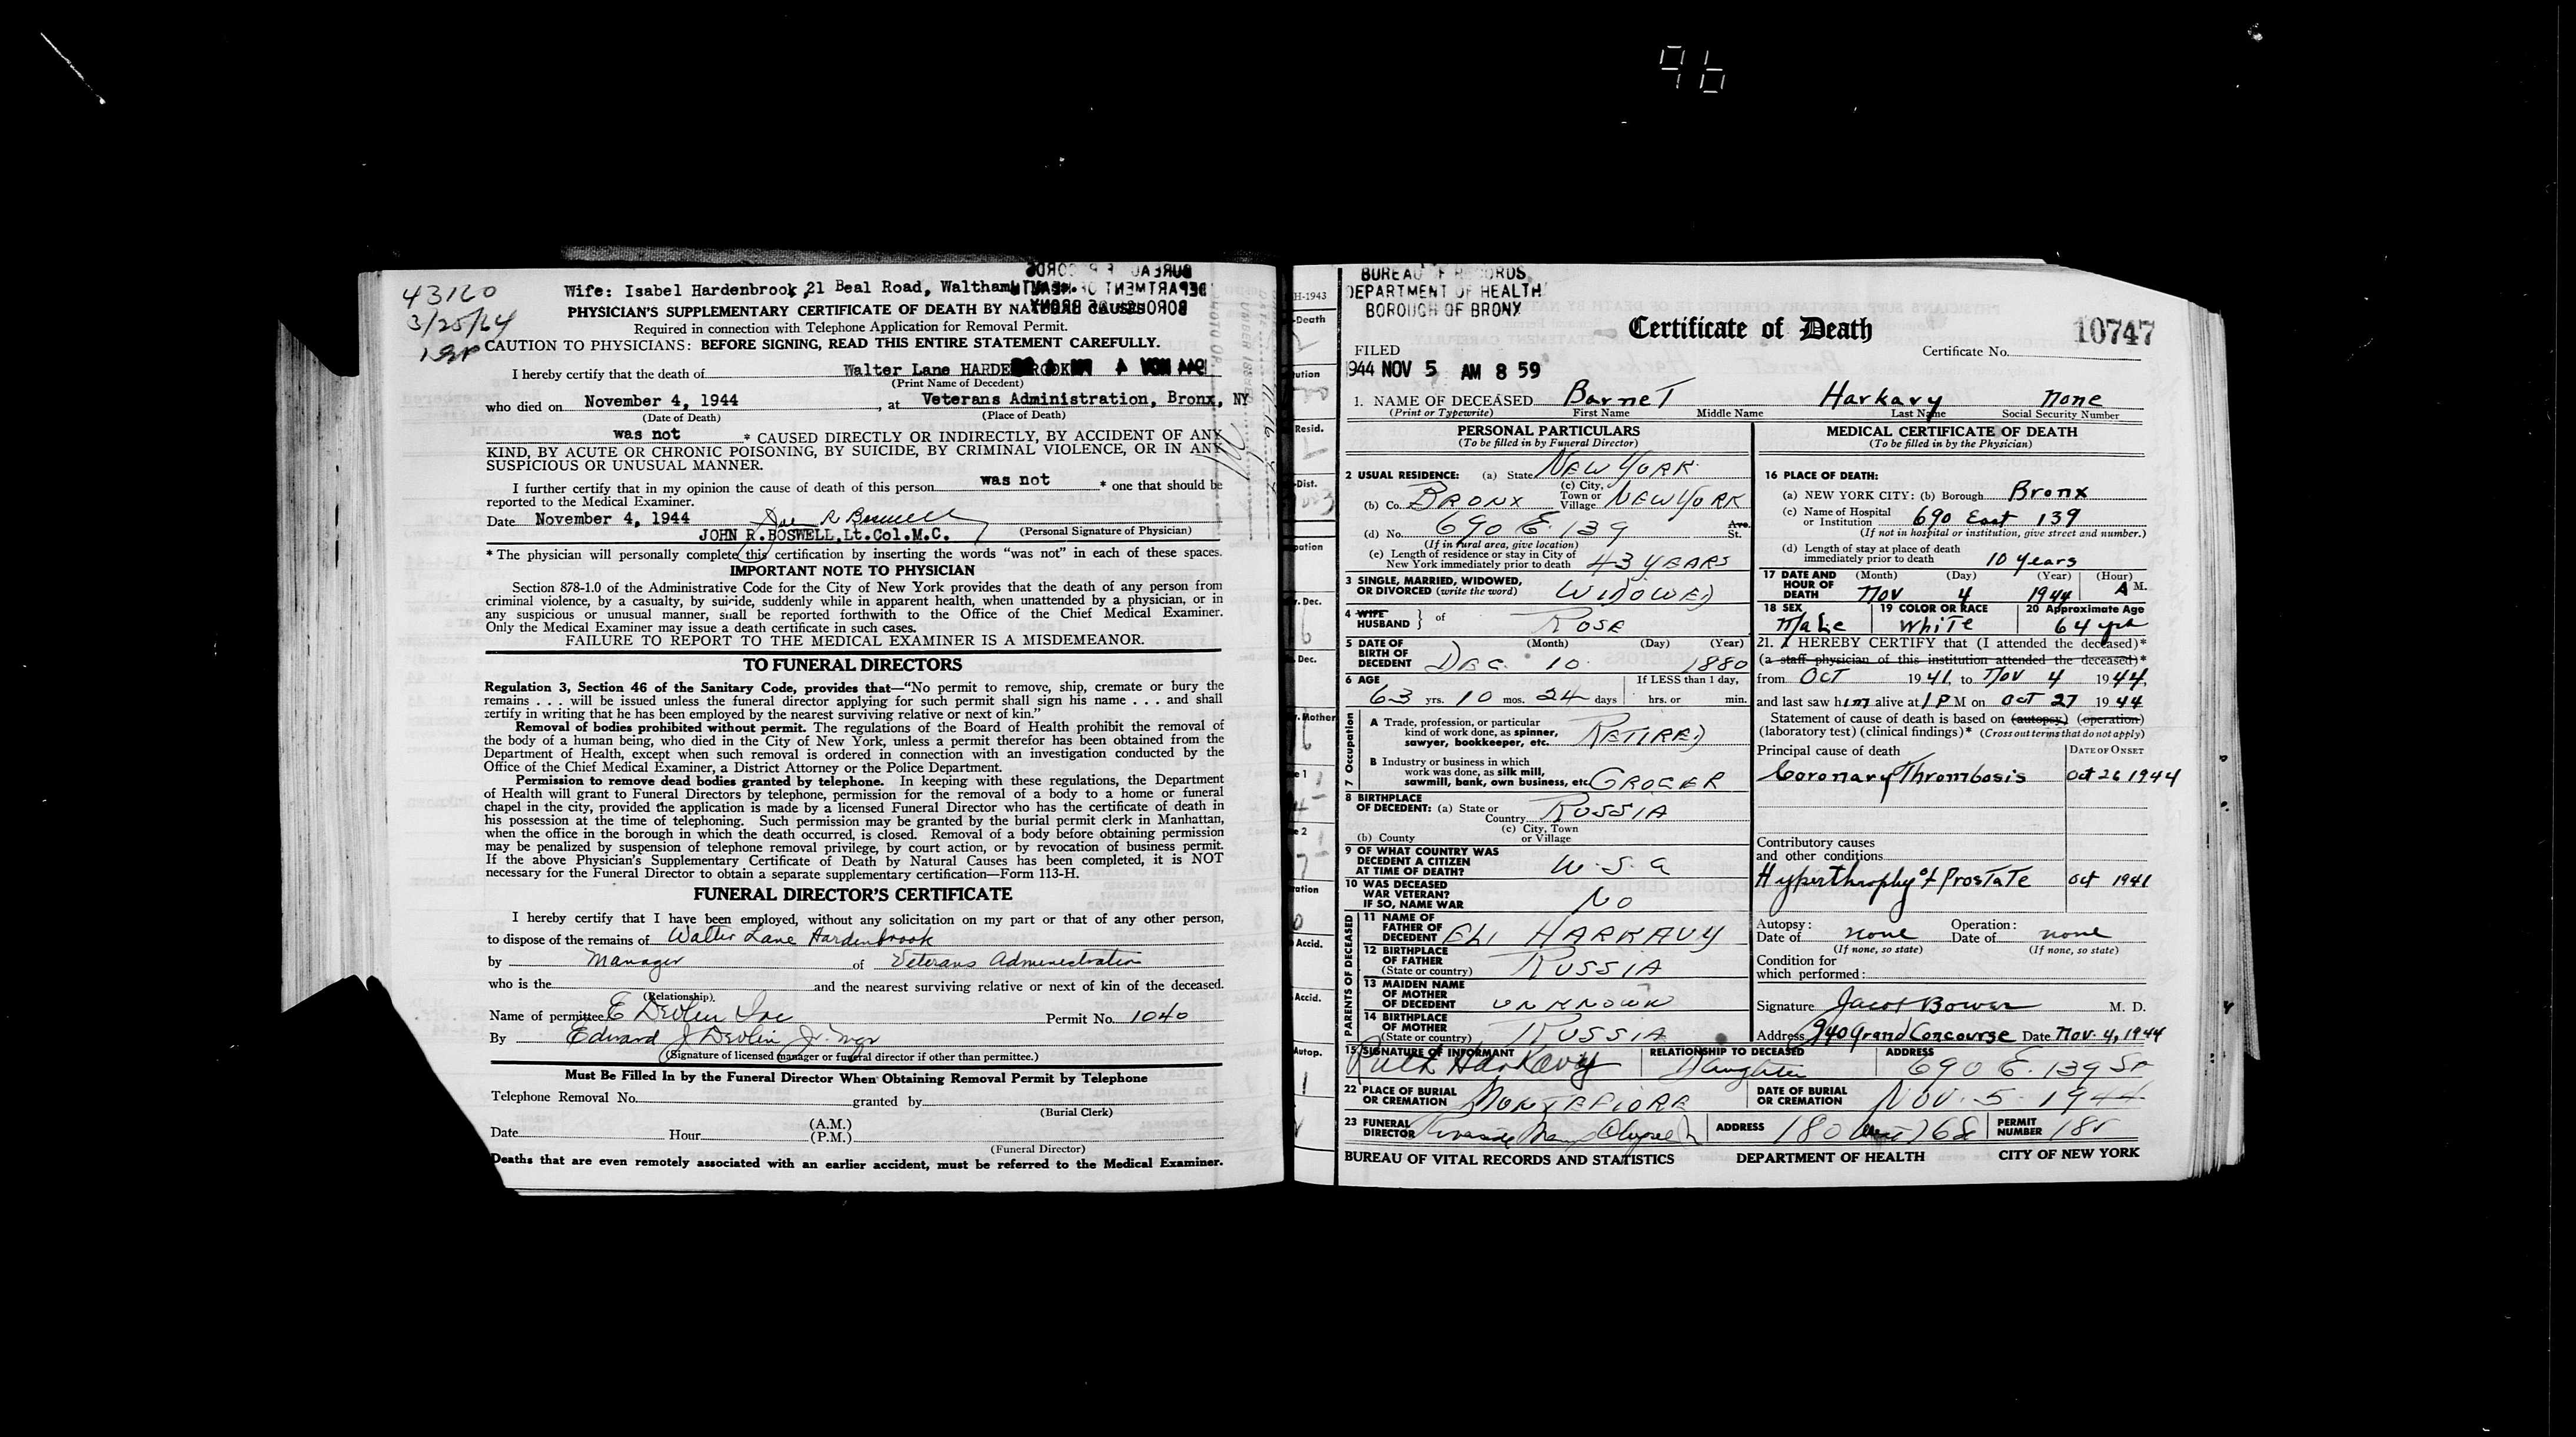 96
43120
3/25/64
Wife: Isabel Hardenbrook, 21 Beal Road, Waltham,
PHYSICIAN'S SUPPLEMENTARY CERTIFICATE OF DEATH BY NATURAL CAUSES
Required in connection with Telephone Application for Removal Permit.
CAUTION TO PHYSICIANS: BEFORE SIGNING, READ THIS ENTIRE STATEMENT CAREFULLY.
I hereby certify that the death of Walter Lane HARDENBROOK
(Print Name of Decedent)
who died on November 4, 1944, at Veterans Administration, Bronx, NY
(Date of Death) (Place of Death)
was not * CAUSED DIRECTLY OR INDIRECTLY, BY ACCIDENT OF ANY
KIND, BY ACUTE OR CHRONIC POISONING, BY SUICIDE, BY CRIMINAL VIOLENCE, OR IN ANY
SUSPICIOUS OR UNUSUAL MANNER.
I further certify that in my opinion the cause of death of this person was not * one that should be
reported to the Medical Examiner.
Date November 4, 1944 John R Boswell
JOHN R.BOSWELL,Lt.Col.M.C. (Personal Signature of Physician)
* The physician will personally complete this certification by inserting the words "was not" in each of these spaces.
IMPORTANT NOTE TO PHYSICIAN
Section 878-1.0 of the Administrative Code for the City of New York provides that the death of any person from
criminal violence, by a casualty, by suicide, suddenly while in apparent health, when unattended by a physician, or in
any suspicious or unusual manner, shall be reported forthwith to the Office of the Chief Medical Examiner.
Only the Medical Examiner may issue a death certificate in such cases.
FAILURE TO REPORT TO THE MEDICAL EXAMINER IS A MISDEMEANOR.
TO FUNERAL DIRECTORS
Regulation 3, Section 46 of the Sanitary Code, provides that—"No permit to remove, ship, cremate or bury the
remains . . . will be issued unless the funeral director applying for such permit shall sign his name . . . and shall
certify in writing that he has been employed by the nearest surviving relative or next of kin."
Removal of bodies prohibited without permit. The regulations of the Board of Health prohibit the removal of
the body of a human being, who died in the City of New York, unless a permit therefor has been obtained from the
Department of Health, except when such removal is ordered in connection with an investigation conducted by the
Office of the Chief Medical Examiner, a District Attorney or the Police Department.
Permission to remove dead bodies granted by telephone. In keeping with these regulations, the Department
of Health will grant to Funeral Directors by telephone, permission for the removal of a body to a home or funeral
chapel in the city, provided the application is made by a licensed Funeral Director who has the certificate of death in
his possession at the time of telephoning. Such permission may be granted by the burial permit clerk in Manhattan,
when the office in the borough in which the death occurred, is closed. Removal of a body before obtaining permission
may be penalized by suspension of telephone removal privilege, by court action, or by revocation of business permit.
If the above Physician's Supplementary Certificate of Death by Natural Causes has been completed, it is NOT
necessary for the Funeral Director to obtain a separate supplementary certification—Form 113-H.
FUNERAL DIRECTOR'S CERTIFICATE
I hereby certify that I have been employed, without any solicitation on my part or that of any other person,
to dispose of the remains of Walter Lane Hardenbrook
by Manager of Veterans Administration
who is the and the nearest surviving relative or next of kin of the deceased.
(Relationship).
Name of permittee E Devlin Inc Permit No. 1040
By Edward J Devlin Jr. Mgr
(Signature of licensed manager or funeral director if other than permittee.)
Must Be Filled In by the Funeral Director When Obtaining Removal Permit by Telephone
Telephone Removal No. granted by
(Burial Clerk)
Date Hour (A.M.)
(P.M.)
(Funeral Director)
Deaths that are even remotely associated with an earlier accident, must be referred to the Medical Examiner.
H-1943
BUREAU OF RECORDS
DEPARTMENT OF HEALTH
BOROUGH OF BRONX
Certificate of Death
10747
Certificate No.
FILED
1944 NOV 5 AM 8 59
1. NAME OF DECEASED Barnet Harkavy none
(Print or Typewrite) First Name Middle Name Last Name Social Security Number
PERSONAL PARTICULARS
(To be filled in by Funeral Director)
2 USUAL RESIDENCE: (a) State NEW YORK
(b) Co. BRONX (c) City, Town or Village NEW YORK
(d) No. 690 E. 139 Ave. St.
(If in rural area, give location)
(e) Length of residence or stay in City of
New York immediately prior to death 43 YEARS
3 SINGLE, MARRIED, WIDOWED,
OR DIVORCED (write the word) WIDOWED
4 WIFE
HUSBAND } of ROSE
5 DATE OF BIRTH OF DECEDENT (Month) (Day) (Year)
DEC. 10. 1880
6 AGE If LESS than 1 day,
63 yrs. 10 mos. 24 days hrs. or min.
7 Occupation
A Trade, profession, or particular
kind of work done, as spinner,
sawyer, bookkeeper, etc. RETIRED
B Industry or business in which
work was done, as silk mill,
sawmill, bank, own business, etc. GROCER
8 BIRTHPLACE
OF DECEDENT: (a) State or Country RUSSIA
(b) County (c) City, Town or Village
9 OF WHAT COUNTRY WAS
DECEDENT A CITIZEN
AT TIME OF DEATH? U.S.A
10 WAS DECEASED
WAR VETERAN?
IF SO, NAME WAR NO
PARENTS OF DECEASED
11 NAME OF
FATHER OF
DECEDENT ELI HARKAVY
12 BIRTHPLACE
OF FATHER
(State or country) RUSSIA
13 MAIDEN NAME
OF MOTHER
OF DECEDENT UNKNOWN
14 BIRTHPLACE
OF MOTHER
(State or country) RUSSIA
MEDICAL CERTIFICATE OF DEATH
(To be filled in by the Physician)
16 PLACE OF DEATH:
(a) NEW YORK CITY: (b) Borough Bronx
(c) Name of Hospital
or Institution 690 East 139
(If not in hospital or institution, give street and number.)
(d) Length of stay at place of death
immediately prior to death 10 years
17 DATE AND HOUR OF DEATH (Month) (Day) (Year) (Hour)
Nov 4 1944 A M.
18 SEX 19 COLOR OR RACE 20 Approximate Age
Male White 64 yrs
21. I HEREBY CERTIFY that (I attended the deceased)*
(a staff physician of this institution attended the deceased)*
from Oct 1941, to Nov 4 1944,
and last saw him alive at 1 P M on Oct 27 1944
Statement of cause of death is based on (autopsy) (operation)
(laboratory test) (clinical findings)* (Cross out terms that do not apply)
Principal cause of death DATE OF ONSET
Coronary Thrombosis Oct 26 1944
Contributory causes
and other conditions
Hyperthrophy of Prostate Oct 1941
Autopsy: Operation:
Date of none Date of none
(If none, so state) (If none, so state)
Condition for
which performed:
Signature Jacob Bower M. D.
Address 940 Grand Concourse Date Nov. 4, 1944
15 SIGNATURE OF INFORMANT RELATIONSHIP TO DECEASED ADDRESS
Ruth Harkavy Daughter 690 E. 139 St
22 PLACE OF BURIAL
OR CREMATION MONTEFIORE DATE OF BURIAL
OR CREMATION NOV. 5. 1944
23 FUNERAL
DIRECTOR Riverside Mem Chapel ADDRESS 180 West 76 St PERMIT
NUMBER 185
BUREAU OF VITAL RECORDS AND STATISTICS DEPARTMENT OF HEALTH CITY OF NEW YORK